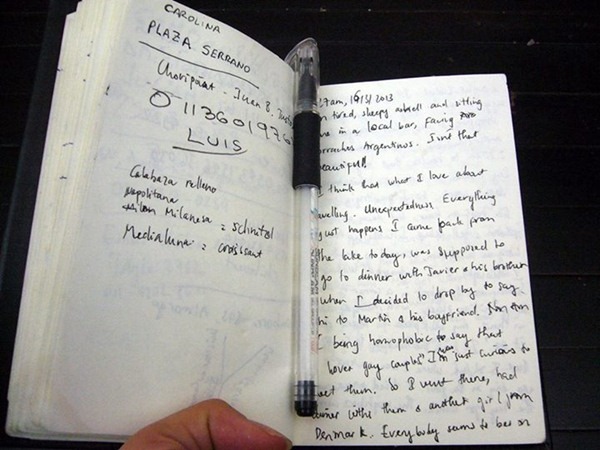 CAROLINA
PLAZA SERRANO
Choripán - Juan B. Justo
011360197
LUIS
Calabaza relleno
napolitana
Milanesa = schnitzel
Medialuna = croissant
27am, 16/3/2013
tired, sleepy and sitting
in a local bar, facing
borrachos Argentinos. Isn't that
beautiful?
I think that what I love about
travelling. Unexpectedness. Everything
just happens. I came back from
the lake today, was supposed to
go to dinner with Javier & his brother
when I decided to drop by to say
hi to Martin & his boyfriend.
I being homophobic to say that
gay couples. I was just curious to
meet them. So I went there, had
dinner with them & another girl from
Denmark. Everybody seems to be on